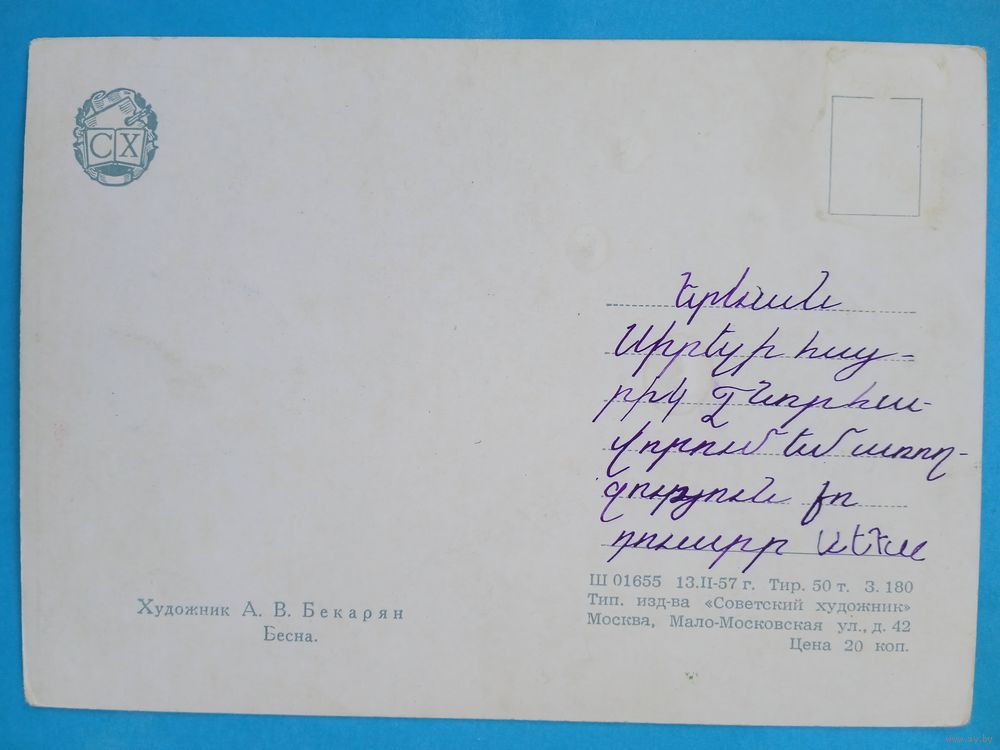 СХ
Երևան
Սիրելի հայ-
րիկ Շնորհա-
վորում եմ առող-
ջություն քո
դուստրը
Художник А. В. Бекарян
Весна.
Ш 01655 13.II-57 г. Тир. 50 т. З. 180
Тип. изд-ва «Советский художник»
Москва, Мало-Московская ул., д. 42
Цена 20 коп.
www.ay.by